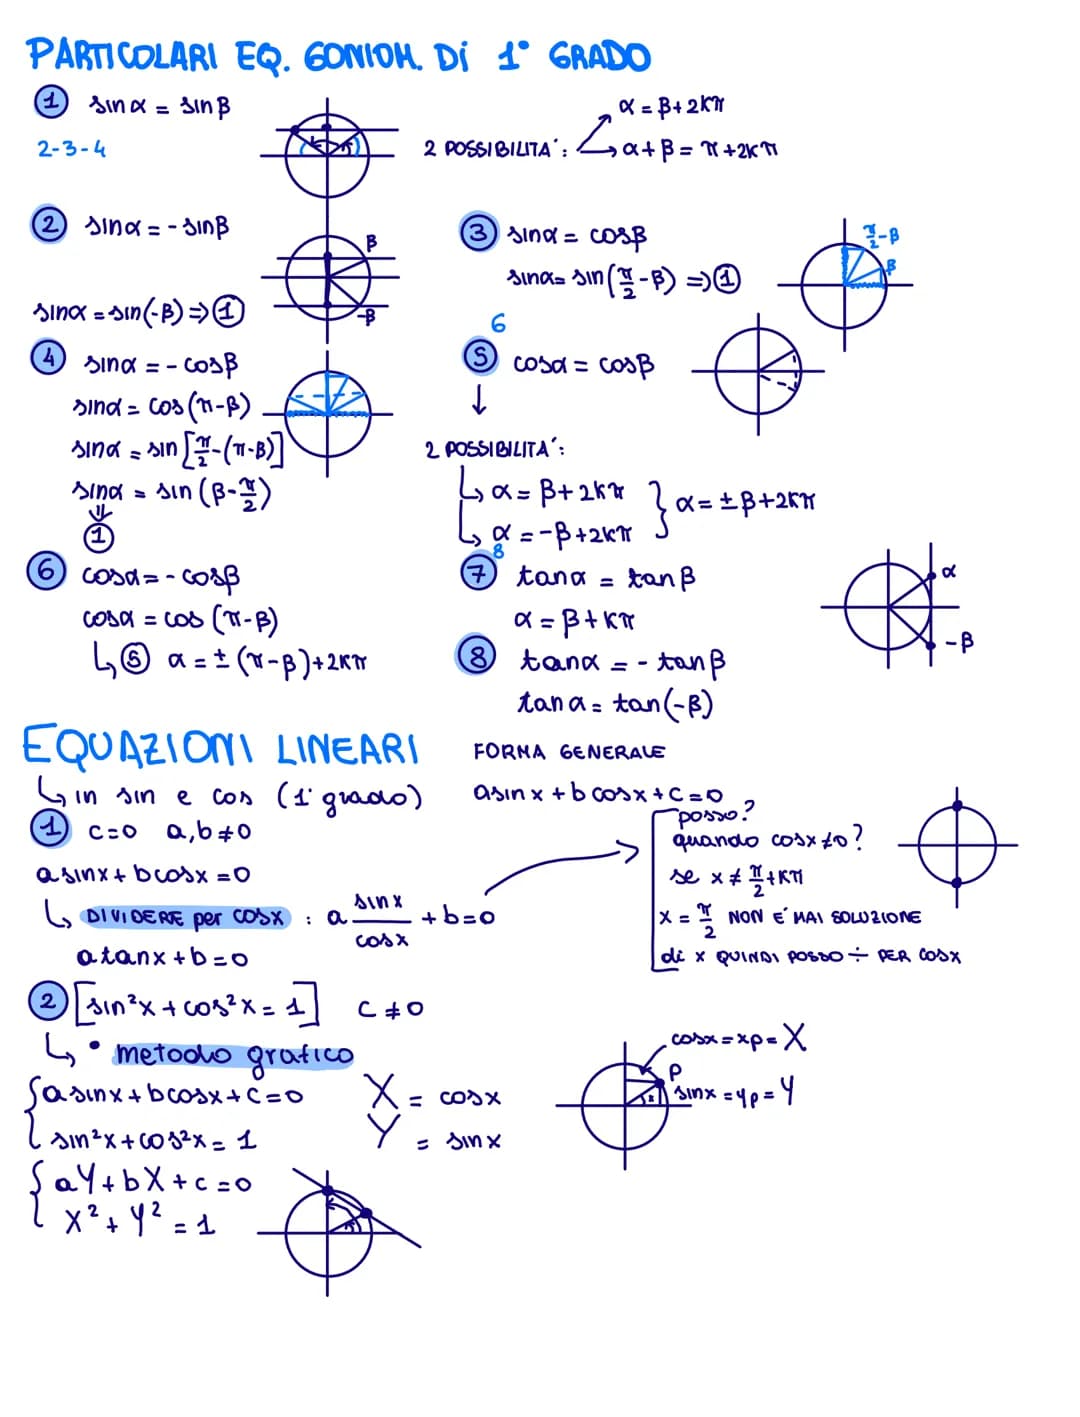 PARTICOLARI EQ. GONIOM. Di 1° GRADO
① sinα = sinβ
2-3-4
2 POSSIBILITA': α = β+2kπ
α+β = π+2kπ
② sinα = - sinβ
β
-β
sinα = sin(-β) ⇒ ①
③ sinα = cosβ
sinα = sin(π/2 - β) ⇒ ①
π/2-β
β
④ sinα = - cosβ
sinα = cos (π-β)
sinα = sin [π/2-(π-β)]
sinα = sin (β-π/2)
⇓
①
6
⑤ cosα = cosβ
↓
2 POSSIBILITA':
↳ α = β+2kπ
↳ α = -β+2kπ
} α = ±β+2kπ
⑥ cosα = - cosβ
cosα = cos (π-β)
↳ ⑤ α = ± (π-β)+2kπ
8
⑦ tanα = tanβ
α = β+kπ
α
-β
⑧ tanα = - tanβ
tanα = tan(-β)
EQUAZIONI LINEARI
↳ in sin e cos (1° grado)
FORMA GENERALE
asinx + bcosx + c = 0
① c=0 a,b≠0
asinx + bcosx = 0
↳ DIVIDERE per cosx : a sinx/cosx + b = 0
atanx + b = 0
posso?
quando cosx≠0?
se x ≠ π/2+kπ
x = π/2 NON E' MAI SOLUZIONE
di x QUINDI POSSO ÷ PER COSX
② [sin²x + cos²x = 1] c ≠ 0
↳ • metodo grafico
{ asinx + bcosx + c = 0
sin²x + cos²x = 1
X = cosx
Y = sinx
cosx = xp = X
P
sinx = yp = Y
{ aY + bX + c = 0
X² + Y² = 1